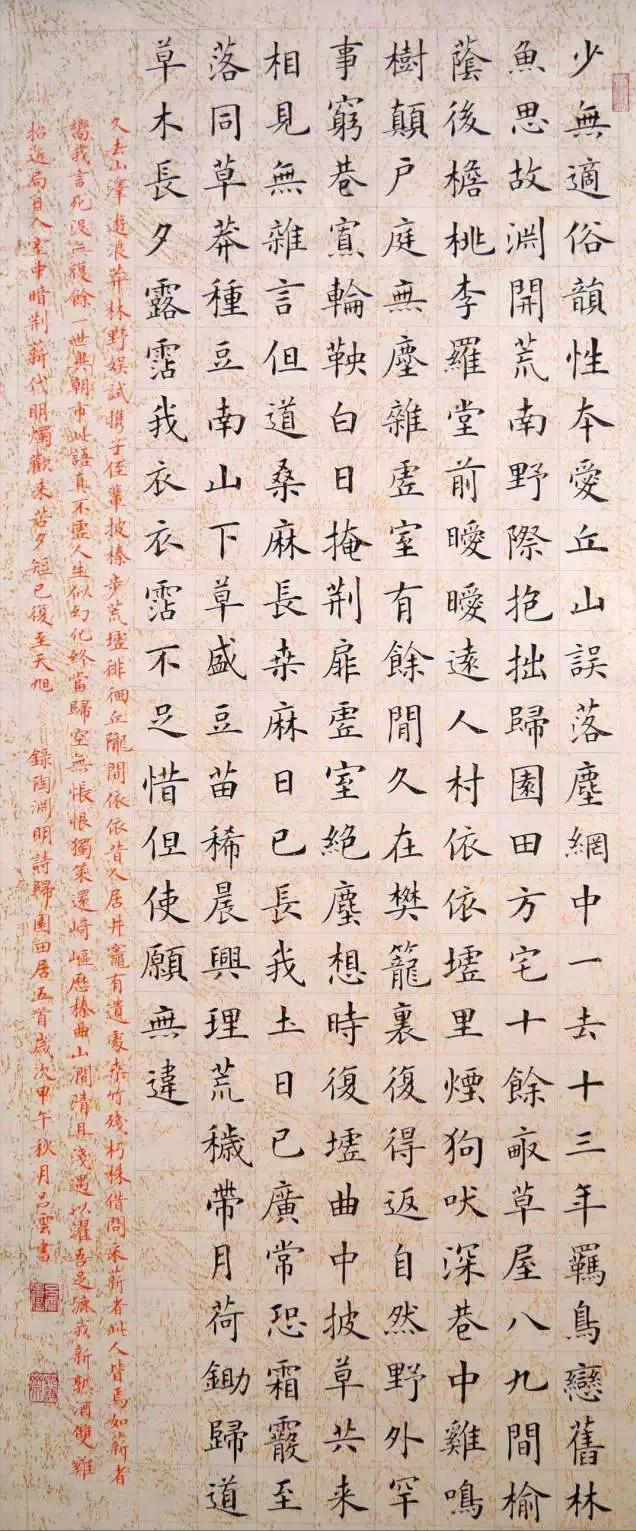 少無適俗韻性本愛丘山誤落塵網中一去十三年羈鳥戀舊林
魚思故淵開荒南野際抱拙歸園田方宅十餘畝草屋八九間榆
蔭後檐桃李羅堂前曖曖遠人村依依墟里煙狗吠深巷中雞鳴
樹顛戶庭無塵雜虛室有餘閒久在樊籠裏復得返自然野外罕
事窮巷寡輪鞅白日掩荆扉虛室絕塵想時復墟曲中披草共来
相見無雜言但道桑麻長桑麻日已長我土日已廣常恐霜霰至
落同草莽種豆南山下草盛豆苗稀晨興理荒穢帶月荷鋤歸道
草木長夕露霑我衣衣霑不足惜但使願無違
久去山澤遊浪莽林野娛試携子侄輩披榛步荒墟徘徊丘隴間依依昔人居井竈有遺處桑竹殘朽株借問采薪者此人皆焉如薪者
嚮我言死沒無復餘一世異朝市此語真不虛人生似幻化終當歸空無悵恨獨策還崎嶇歷榛曲山澗清且淺遇以濯吾足漉我新熟酒雙雞
招近局日入室中暗荆薪代明燭歡来苦夕短已復至天旭 錄陶淵明詩歸園田居五首歲次甲午秋月吕雲書